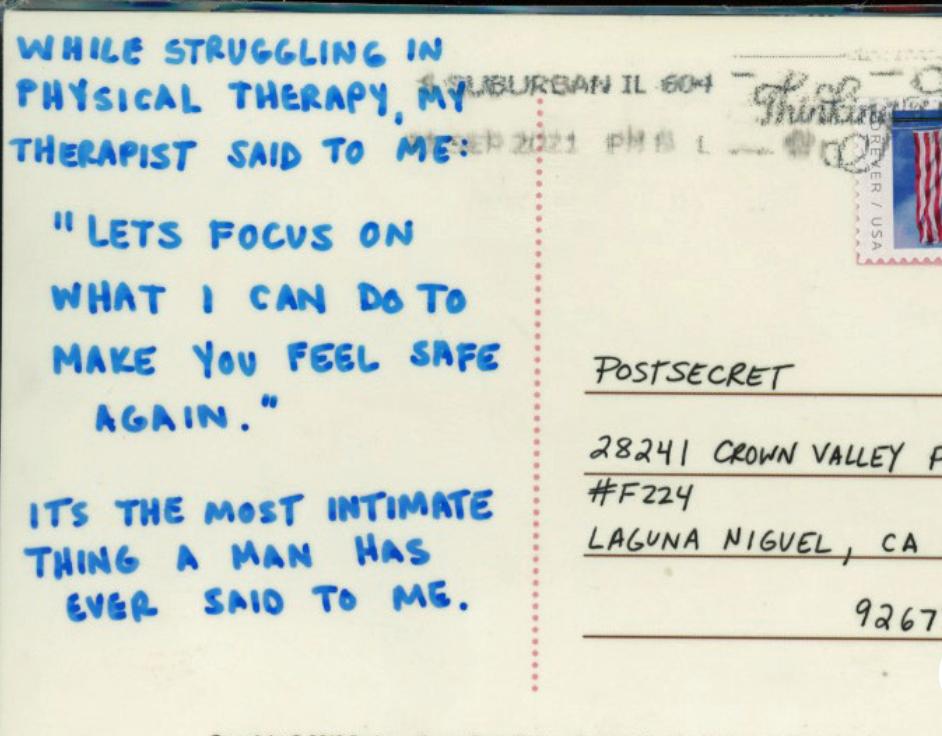 WHILE STRUGGLING IN
PHYSICAL THERAPY, MY
THERAPIST SAID TO ME:
"LETS FOCUS ON
WHAT I CAN DO TO
MAKE YOU FEEL SAFE
AGAIN."
ITS THE MOST INTIMATE
THING A MAN HAS
EVER SAID TO ME.
SUBURBAN IL 604
SEP 2021 PM
Thinking
FOREVER / USA
POSTSECRET
28241 CROWN VALLEY
#F224
LAGUNA NIGUEL, CA
9267